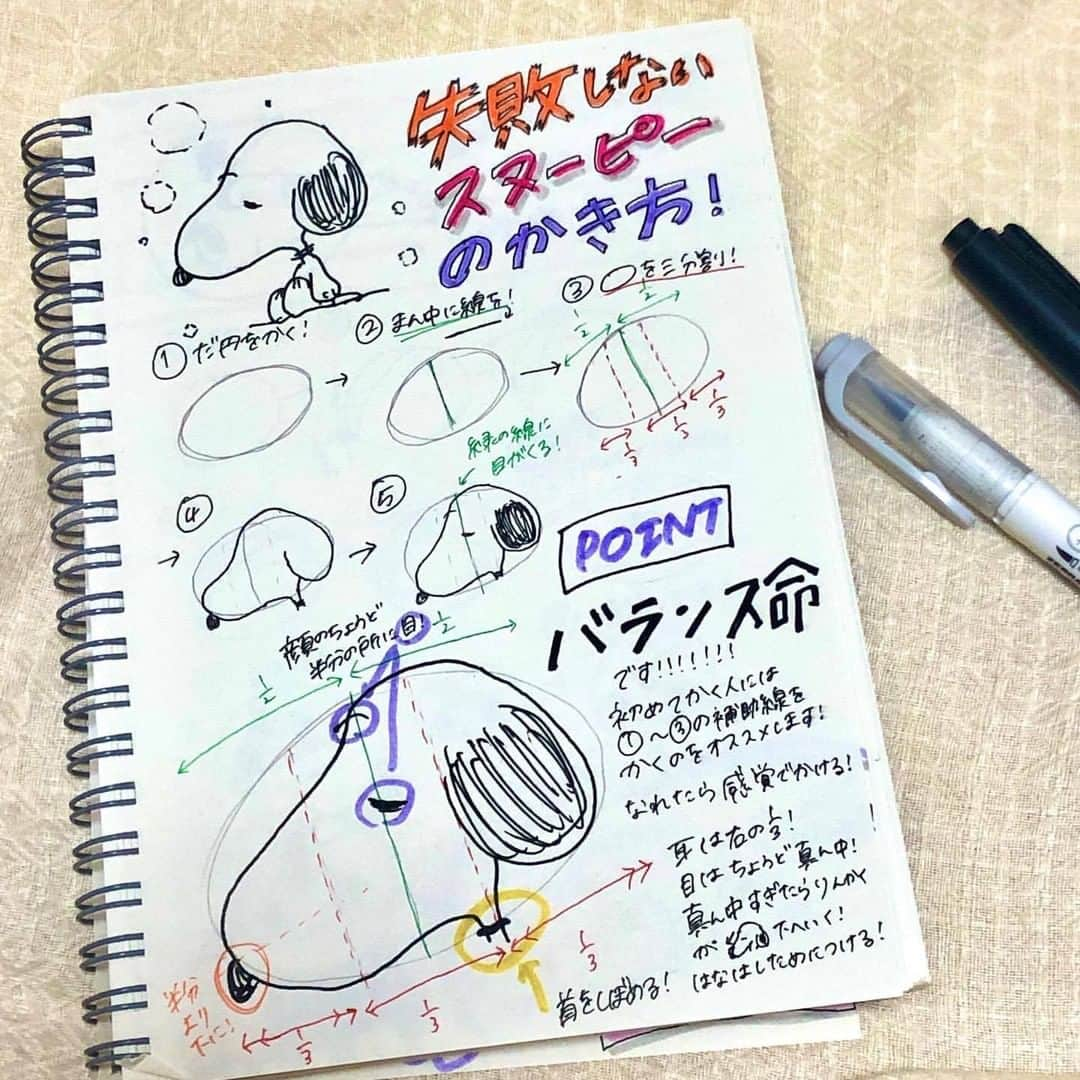 失敗しない
スヌーピー
のかき方!
① だ円をかく!
② まん中に線を!
③ ○を三分割!
1/2
1/2
1/3
1/3
1/3
緑の線に
目がくる!
④
⑤
POINT
バランス命
です!!!!!!!
初めてかく人には
①〜③の補助線を
かくのをオススメします!
なれたら感覚でかける!
顔のちょうど
半分の所に目!
1/2
1/2
耳は右の1/3!
目はちょうど真ん中!
真ん中すぎたらりんかく
が
下へいく!
はなはしためにつける!
首をしぼめる!
半分
より
下に!
1/3
1/3
1/3